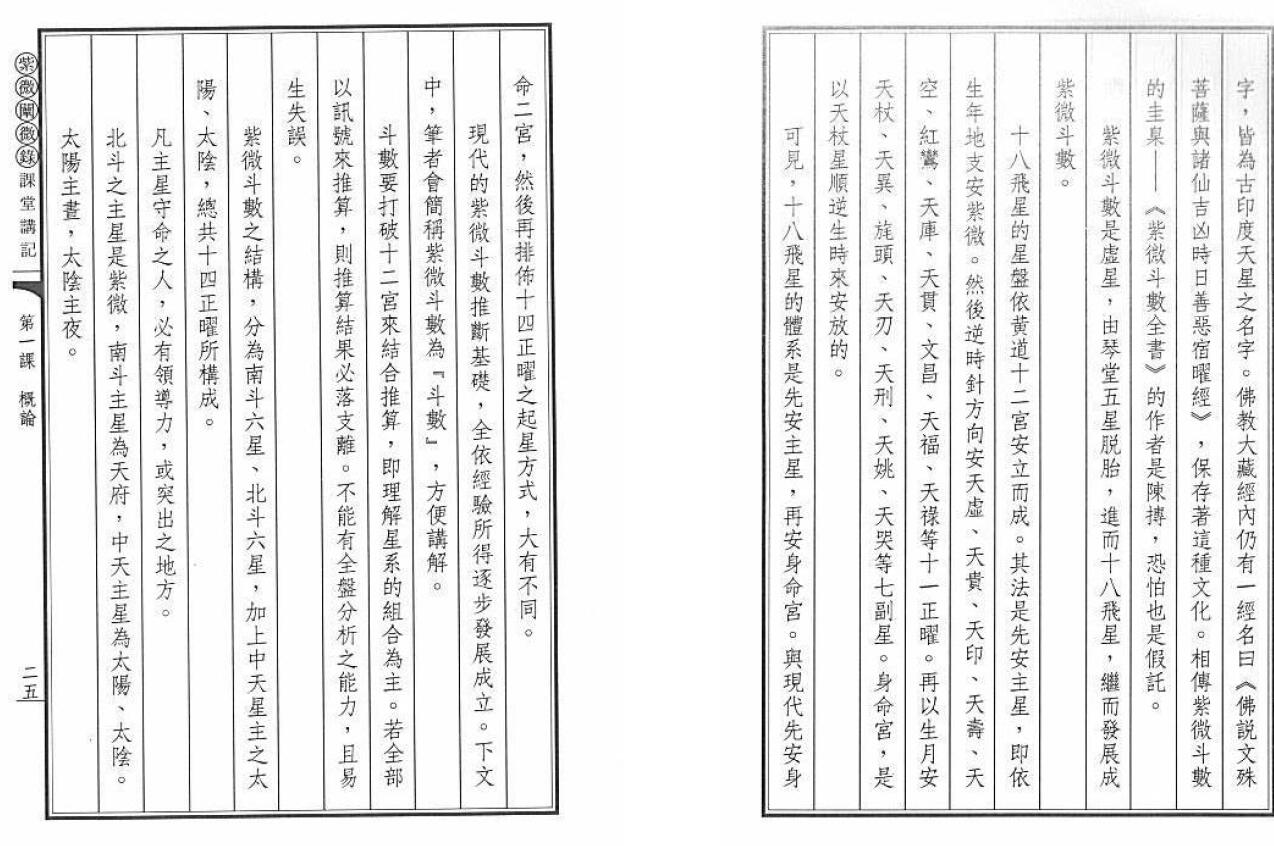 字，皆為古印度天星之名字。佛教大藏經內仍有一經名曰《佛說文殊
菩薩與諸仙吉凶時日善惡宿曜經》，保存著這種文化。相傳紫微斗數
的圭臬——《紫微斗數全書》的作者是陳摶，恐怕也是假託。
紫微斗數是虛星，由琴堂五星脱胎，進而十八飛星，繼而發展成
紫微斗數。
十八飛星的星盤依黄道十二宮安立而成。其法是先安主星，即依
生年地支安紫微。然後逆時針方向安天虛、天貴、天印、天壽、天
空、紅鸞、天庫、天貫、文昌、天福、天祿等十一正曜。再以生月安
天杖、天異、旄頭、天刃、天刑、天姚、天哭等七副星。身命宮，是
以天杖星順逆生時來安放的。
可見，十八飛星的體系是先安主星，再安身命宮。與現代先安身
命二宮，然後再排佈十四正曜之起星方式，大有不同。
現代的紫微斗數推斷基礎，全依經驗所得逐步發展成立。下文
中，筆者會簡稱紫微斗數為『斗數』，方便講解。
斗數要打破十二宮來結合推算，即理解星系的組合為主。若全部
以訊號來推算，則推算結果必落支離。不能有全盤分析之能力，且易
生失誤。
紫微斗數之結構，分為南斗六星、北斗六星，加上中天星主之太
陽、太陰，總共十四正曜所構成。
凡主星守命之人，必有領導力，或突出之地方。
北斗之主星是紫微，南斗主星為天府，中天主星為太陽、太陰。
太陽主晝，太陰主夜。
紫微闡微錄課堂講記
第一課　概論
二五